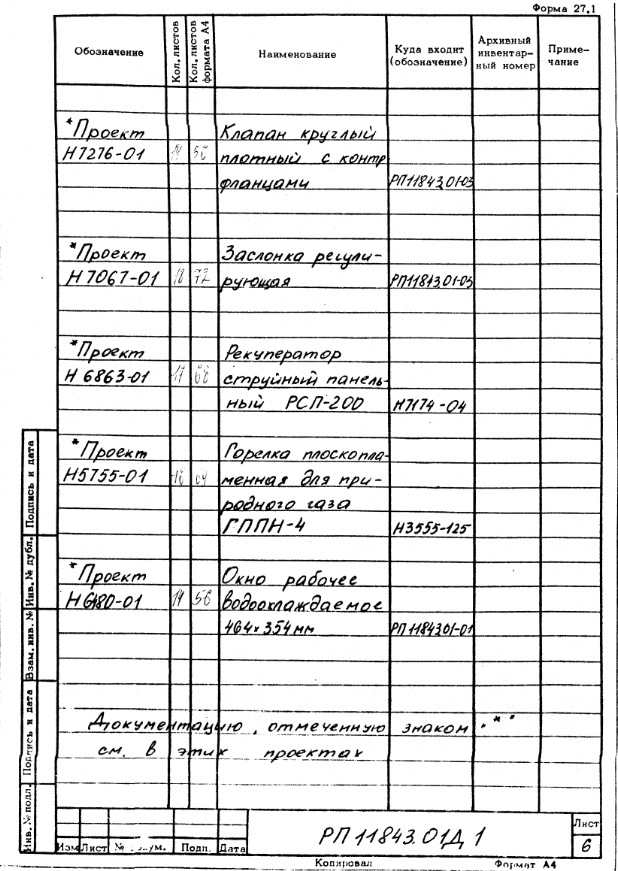 Форма 27.1
Обозначение Кол. листов Кол. листов формата А4 Наименование Куда входит (обозначение) Архивный инвентар- ный номер Приме- чание
*Проект Клапан круглый
Н7276-01 14 56 плотный с контр
фланцами РП11843.01-03
*Проект Заслонка регули-
Н7067-01 18 72 рующая РП11843.01-05
*Проект Рекуператор
Н6863-01 17 68 струйный панель-
ный РСП-200 Н7174-04
*Проект Горелка плоскопла-
Н5755-01 16 64 менная для при-
родного газа
ГППН-4 Н3555-125
*Проект Окно рабочее
Н6180-01 14 56 водоохлаждаемое
464×354мм РП11843.01-01
Документацию, отмеченную знаком „*"
см. в этих проектах
Инв. № подл. Подпись и дата Взам. инв. № Инв. № дубл. Подпись и дата
РП 11843.01Д1
Лист
6
Изм Лист № Подп. Дата
Копировал Формат А4